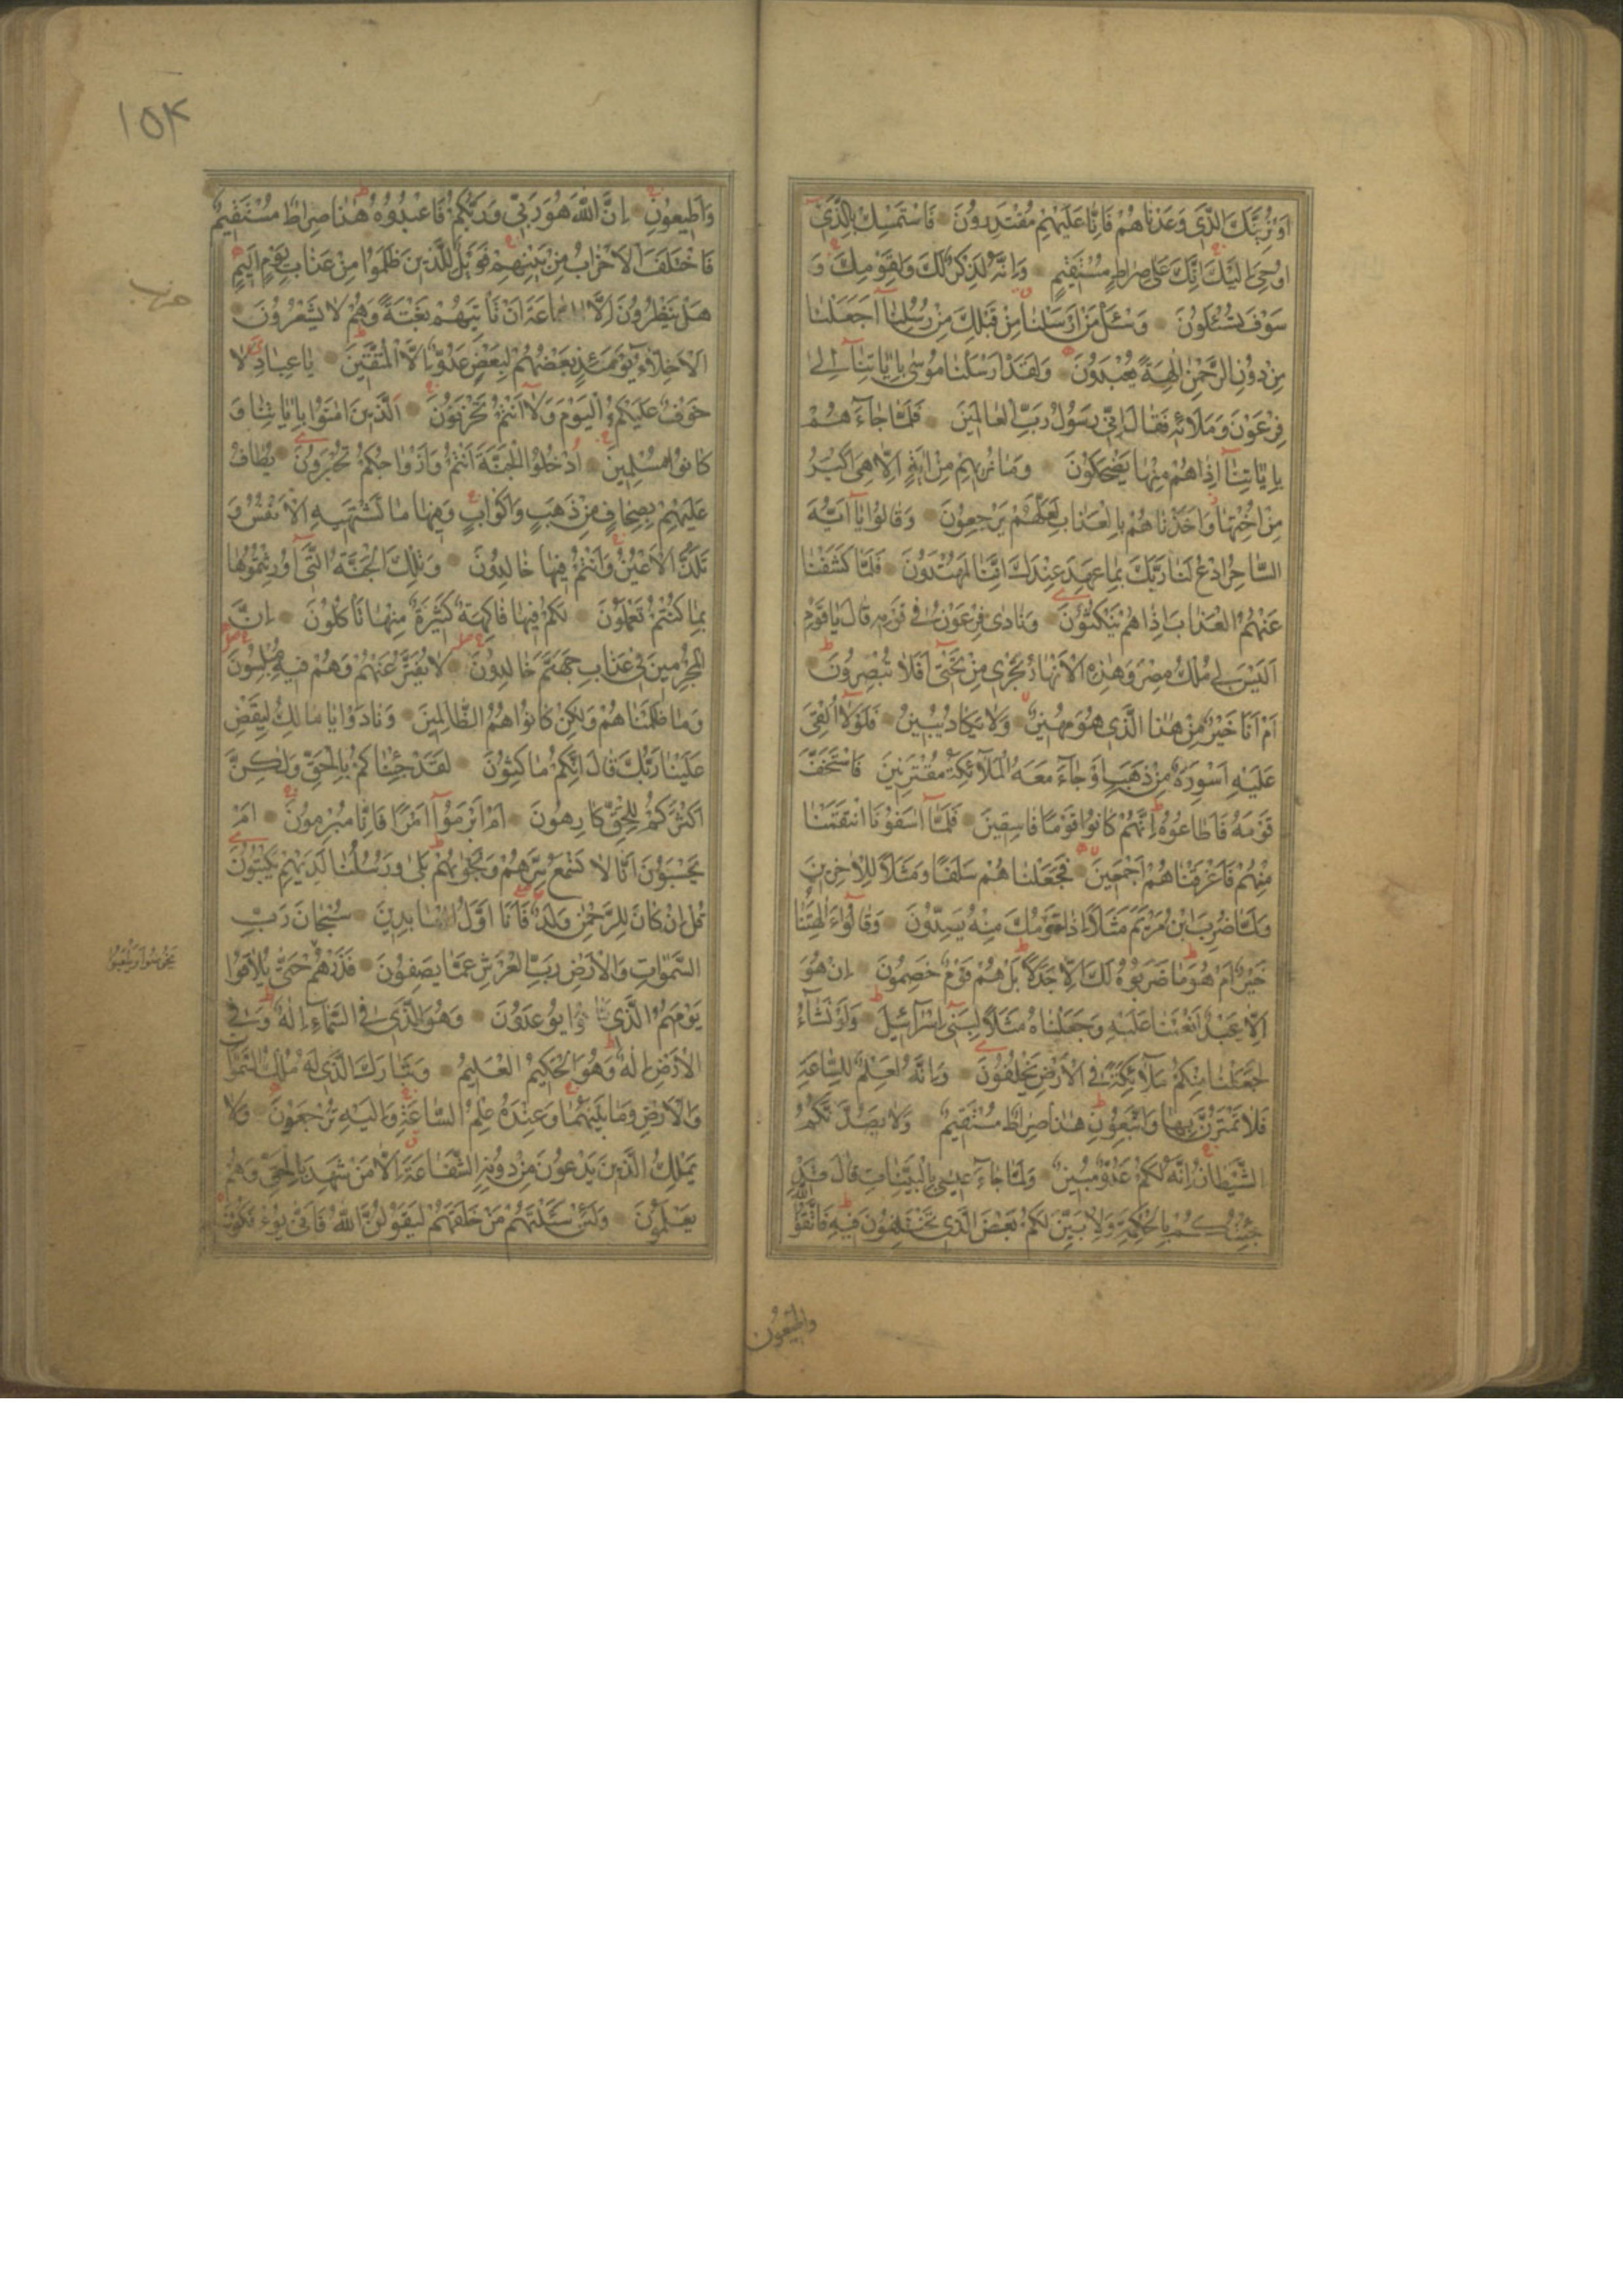 اَوْ نُرِیَنَّكَ الَّذی وَعَدْنَاهُمْ فَاِنَّا عَلَیْهِمْ مُقْتَدِرُونَ فَاسْتَمْسِكْ بِالَّذی
اُوحِیَ اِلَیْكَ اِنَّكَ عَلی صِرَاطٍ مُسْتَقیمٍ وَاِنَّهُ لَذِكْرٌ لَكَ وَلِقَوْمِكَ وَ
سَوْفَ تُسْئَلُونَ وَسْئَلْ مَنْ اَرْسَلْنَا مِنْ قَبْلِكَ مِنْ رُسُلِنَا اَجَعَلْنَا
مِنْ دُونِ الرَّحْمٰنِ اٰلِهَةً یُعْبَدُونَ وَلَقَدْ اَرْسَلْنَا مُوسٰی بِاٰیَاتِنَا اِلٰی
فِرْعَوْنَ وَمَلَائِهِ فَقَالَ اِنّی رَسُولُ رَبِّ الْعَالَمینَ فَلَمَّا جَاءَهُمْ
بِاٰیَاتِنَا اِذَا هُمْ مِنْهَا یَضْحَكُونَ وَمَا نُریهِمْ مِنْ اٰیَةٍ اِلَّا هِیَ اَكْبَرُ
مِنْ اُخْتِهَا وَاَخَذْنَاهُمْ بِالْعَذَابِ لَعَلَّهُمْ یَرْجِعُونَ وَقَالُوا یَا اَیُّهَ
السَّاحِرُ ادْعُ لَنَا رَبَّكَ بِمَا عَهِدَ عِنْدَكَ اِنَّنَا لَمُهْتَدُونَ فَلَمَّا كَشَفْنَا
عَنْهُمُ الْعَذَابَ اِذَا هُمْ یَنْكُثُونَ وَنَادٰی فِرْعَوْنُ فی قَوْمِهِ قَالَ یَا قَوْمِ
اَلَیْسَ لی مُلْكُ مِصْرَ وَهٰذِهِ الْاَنْهَارُ تَجْری مِنْ تَحْتی اَفَلَا تُبْصِرُونَ
اَمْ اَنَا خَیْرٌ مِنْ هٰذَا الَّذی هُوَ مَهینٌ وَلَا یَكَادُ یُبینُ فَلَوْلَا اُلْقِیَ
عَلَیْهِ اَسْوِرَةٌ مِنْ ذَهَبٍ اَوْ جَاءَ مَعَهُ الْمَلَائِكَةُ مُقْتَرِنینَ فَاسْتَخَفَّ
قَوْمَهُ فَاَطَاعُوهُ اِنَّهُمْ كَانُوا قَوْمًا فَاسِقینَ فَلَمَّا اٰسَفُونَا انْتَقَمْنَا
مِنْهُمْ فَاَغْرَقْنَاهُمْ اَجْمَعینَ فَجَعَلْنَاهُمْ سَلَفًا وَمَثَلًا لِلْاٰخِرینَ
وَلَمَّا ضُرِبَ ابْنُ مَرْیَمَ مَثَلًا اِذَا قَوْمُكَ مِنْهُ یَصِدُّونَ وَقَالُوا ءَاٰلِهَتُنَا
خَیْرٌ اَمْ هُوَ مَا ضَرَبُوهُ لَكَ اِلَّا جَدَلًا بَلْ هُمْ قَوْمٌ خَصِمُونَ اِنْ هُوَ
اِلَّا عَبْدٌ اَنْعَمْنَا عَلَیْهِ وَجَعَلْنَاهُ مَثَلًا لِبَنی اِسْرَائیلَ وَلَوْ نَشَاءُ
لَجَعَلْنَا مِنْكُمْ مَلَائِكَةً فِی الْاَرْضِ یَخْلُفُونَ وَاِنَّهُ لَعِلْمٌ لِلسَّاعَةِ
فَلَا تَمْتَرُنَّ بِهَا وَاتَّبِعُونِ هٰذَا صِرَاطٌ مُسْتَقیمٌ وَلَا یَصُدَّنَّكُمُ
الشَّیْطَانُ اِنَّهُ لَكُمْ عَدُوٌّ مُبینٌ وَلَمَّا جَاءَ عیسٰی بِالْبَیِّنَاتِ قَالَ قَدْ
جِئْتُكُمْ بِالْحِكْمَةِ وَلِاُبَیِّنَ لَكُمْ بَعْضَ الَّذی تَخْتَلِفُونَ فیهِ فَاتَّقُوا اللّٰهَ
واطیعون
۱۵۴
وَاَطیعُونِ اِنَّ اللّٰهَ هُوَ رَبّی وَرَبُّكُمْ فَاعْبُدُوهُ هٰذَا صِرَاطٌ مُسْتَقیمٌ
فَاخْتَلَفَ الْاَحْزَابُ مِنْ بَیْنِهِمْ فَوَیْلٌ لِلَّذینَ ظَلَمُوا مِنْ عَذَابِ یَوْمٍ اَلیمٍ
حزب
هَلْ یَنْظُرُونَ اِلَّا السَّاعَةَ اَنْ تَاْتِیَهُمْ بَغْتَةً وَهُمْ لَا یَشْعُرُونَ
اَلْاَخِلَّاءُ یَوْمَئِذٍ بَعْضُهُمْ لِبَعْضٍ عَدُوٌّ اِلَّا الْمُتَّقینَ یَا عِبَادِ لَا
خَوْفٌ عَلَیْكُمُ الْیَوْمَ وَلَا اَنْتُمْ تَحْزَنُونَ اَلَّذینَ اٰمَنُوا بِاٰیَاتِنَا وَ
كَانُوا مُسْلِمینَ اُدْخُلُوا الْجَنَّةَ اَنْتُمْ وَاَزْوَاجُكُمْ تُحْبَرُونَ یُطَافُ
عَلَیْهِمْ بِصِحَافٍ مِنْ ذَهَبٍ وَاَكْوَابٍ وَفیهَا مَا تَشْتَهیهِ الْاَنْفُسُ وَ
تَلَذُّ الْاَعْیُنُ وَاَنْتُمْ فیهَا خَالِدُونَ وَتِلْكَ الْجَنَّةُ الَّتی اُورِثْتُمُوهَا
بِمَا كُنْتُمْ تَعْمَلُونَ لَكُمْ فیهَا فَاكِهَةٌ كَثیرَةٌ مِنْهَا تَاْكُلُونَ اِنَّ
الْمُجْرِمینَ فی عَذَابِ جَهَنَّمَ خَالِدُونَ لَا یُفَتَّرُ عَنْهُمْ وَهُمْ فیهِ مُبْلِسُونَ
وَمَا ظَلَمْنَاهُمْ وَلٰكِنْ كَانُوا هُمُ الظَّالِمینَ وَنَادَوْا یَا مَالِكُ لِیَقْضِ
عَلَیْنَا رَبُّكَ قَالَ اِنَّكُمْ مَاكِثُونَ لَقَدْ جِئْنَاكُمْ بِالْحَقِّ وَلٰكِنَّ
اَكْثَرَكُمْ لِلْحَقِّ كَارِهُونَ اَمْ اَبْرَمُوا اَمْرًا فَاِنَّا مُبْرِمُونَ اَمْ
یَحْسَبُونَ اَنَّا لَا نَسْمَعُ سِرَّهُمْ وَنَجْوٰیهُمْ بَلٰی وَرُسُلُنَا لَدَیْهِمْ یَكْتُبُونَ
قُلْ اِنْ كَانَ لِلرَّحْمٰنِ وَلَدٌ فَاَنَا اَوَّلُ الْعَابِدینَ سُبْحَانَ رَبِّ
السَّمٰوَاتِ وَالْاَرْضِ رَبِّ الْعَرْشِ عَمَّا یَصِفُونَ فَذَرْهُمْ حَتّٰی یُلَاقُوا
یَخُوضُوا وَیَلْعَبُوا
یَوْمَهُمُ الَّذی یُوعَدُونَ وَهُوَ الَّذی فِی السَّمَاءِ اِلٰهٌ وَفِی
الْاَرْضِ اِلٰهٌ وَهُوَ الْحَكیمُ الْعَلیمُ وَتَبَارَكَ الَّذی لَهُ مُلْكُ السَّمٰوَاتِ
وَالْاَرْضِ وَمَا بَیْنَهُمَا وَعِنْدَهُ عِلْمُ السَّاعَةِ وَاِلَیْهِ تُرْجَعُونَ وَلَا
یَمْلِكُ الَّذینَ یَدْعُونَ مِنْ دُونِهِ الشَّفَاعَةَ اِلَّا مَنْ شَهِدَ بِالْحَقِّ وَهُمْ
یَعْلَمُونَ وَلَئِنْ سَئَلْتَهُمْ مَنْ خَلَقَهُمْ لَیَقُولُنَّ اللّٰهُ فَاَنّٰی یُؤْفَكُونَ